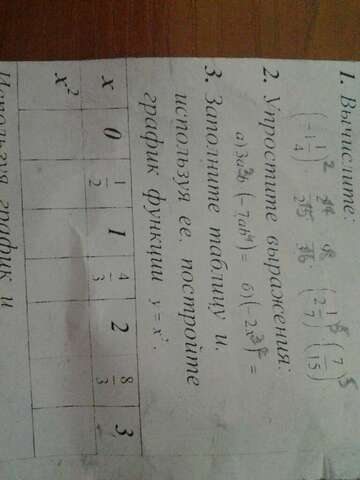 1. Вычислите:
(-1 1/4)² (2 1/7)⁵ (7/15)⁵
2. Упростите выражения:
а) 3a³b (-7ab⁴)= б) (-2x³)² =
3. Заполните таблицу и,
используя ее, постройте
график функции y = x².
x 0 1/2 1 4/3 2 8/3 3
x²
Используя график и